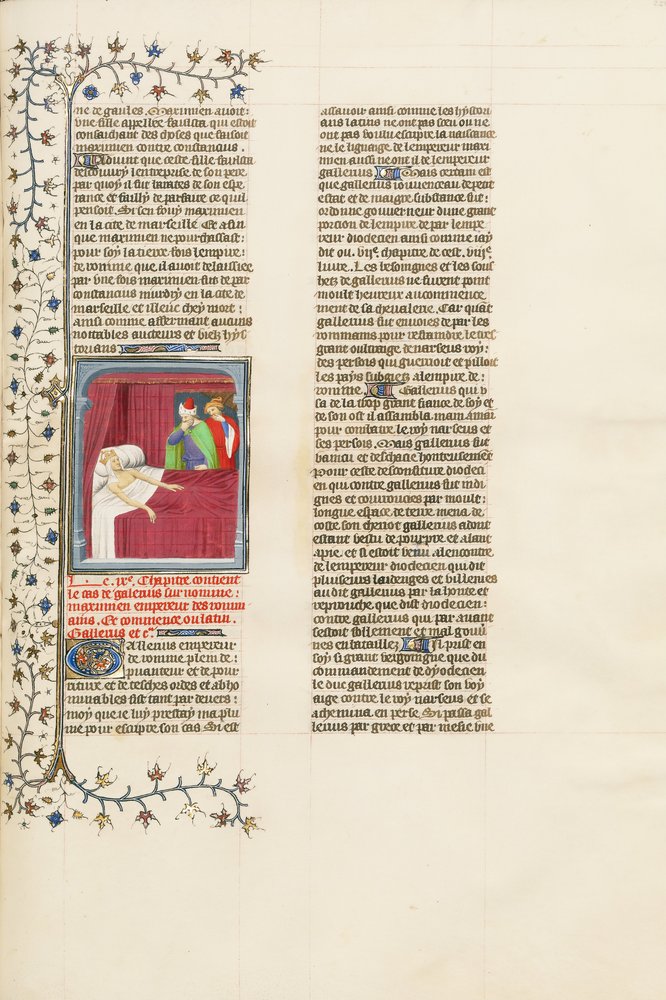 ne de gaules. Maximien avoit:
une fille appellee fausta qui estoit
consachant des choses que faisoit
maximien contre constancius.
Advint que ceste fille fausta
descouvry lentreprise de son pere
par quoy il fut taratés de son espe
rance et failly de parfaire ce quil
pensoit. Si sen fouy maximien
en la cite de marseille Et afin
que maximien ne pourchassast:
pour soy la tierce fois lempire:
de romme que il avoit delaissie
par une fois maximien fut de par
constancius murdry en la cite de
marseille et illeuc chey mort:
ainsi comme afferment aucuns
nottables aucteurs et vielz hys
torians
Le .ixe. Chapitre contient
le cas de galerius surnomme:
maximien empereur des romm
ains. Et commence ou latin.
Gallerius et ca.
Gallerius empereur
de romme plein de:
puanteur et de pour
riture et de tesches ordes et abho
minables fist tant par devers:
moy que je luy prestay ma plu
me pour escripre son cas Si est
assavoir ainsi comme les hystori
ans latins ne ont pas sceu ou ne
ont pas voulu escripre la naissance
ne le lignaige de lempereur maxi
mien aussi ne ont il de lempereur
gallerius Mais certain est
que gallerius jouvenceau de petit
estat et de maigre substance fut:
ordonne gouverneur dune grant
porcion de lempire de par lempe
reur dioclecien ainsi comme jay
dit ou. viie. chapitre de cest. viiie.
livre. Les besoingnes et les souh
hetz de gallerius ne furent point
moult heureux au commence
ment de sa chevalerie. Car quant
gallerius fut envoies de par les
rommains pour restraindre le tres
grant oultraige de narseus roy:
des persois qui guerrioit et pilloit
les pays subgietz a lempire de:
romme. Gallerius qui v
sa de la trop grant fiance de soy et
de son ost il assembla main a main
pour combatre le roy narseus et
ses persois. Mais gallerius fut
vaincu et deschace honteusement
Pour ceste desconfiture diocleci
en qui contre gallerius fut indi
gnes et courrouciez par moult:
longue espace de terre mena de
coste son cheriot gallerius adont
estant vestu de pourpre et alant
a pie. et si estoit venu a lencontre
de lempereur dioclecien qui dit
plusieurs laidenges et villenies
au dit gallerius par la honte et
reprouche que dist dioclecien:
contre gallerius qui par avant
sestoit follement et mal gouver
nes en bataillez Si prist en
soy si grant vergoingne que du
commandement de dyoclecien
le duc gallerius reprist son voy
aige contre le roy narseus et se
achemina. en perse. Si passa gal
lerius par grece et par mesie une